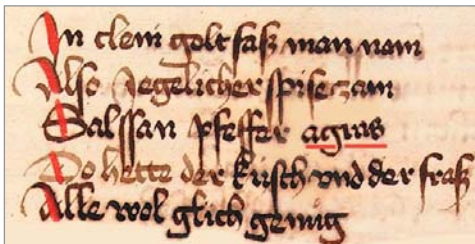 In clein golt faß man nam
Also iegelicher spise zam
Salssan pfeffer agras
Do hette der kusch vnd der fraß
Alle wol glich genug